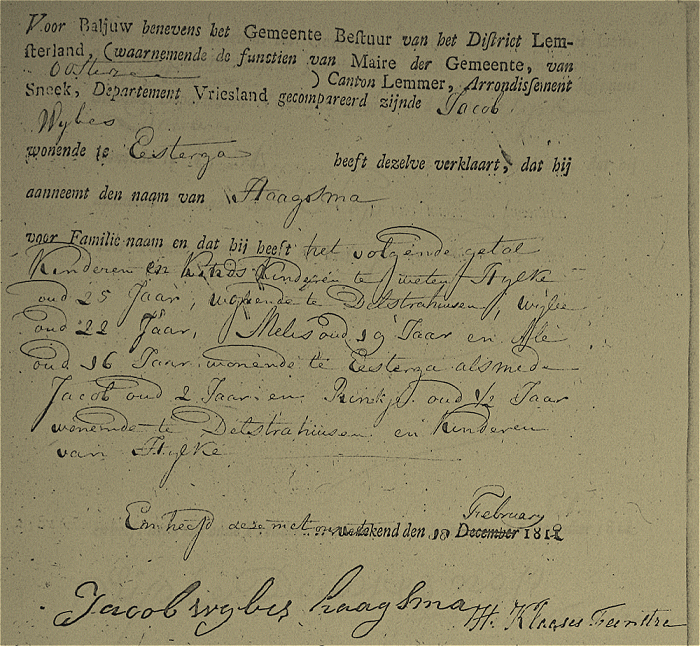 Voor Baljuw benevens het Gemeente Bestuur van het District Lem-
sterland, (waarnemende de functien van Maire der Gemeente, van
) Canton Lemmer, Arrondissement
Sneek, Departement Vriesland gecompareerd zijnde Jacob
Wybes
wonende te Eesterga heeft dezelve verklaart, dat hij
aanneemt den naam van Haagsma
voor Familie naam en dat hij heeft het volgende getal
Kinderen en Kinds Kinderen te weten Hylke
oud 25 Jaar, wonende te Delstrahuisen, wybe
oud 22 Jaar, Melis oud 19 Jaar en Ale
oud 16 Jaar wonende te Eesterga alsmede
Jacob oud 2 Jaar en Rinkje oud 1/2 Jaar
wonende te Delstrahuisen en Kinderen
van Hylke
En heeft deze met ons getekend den 10 December February 1812
Jacob wybes haagsma H. Klaases Feenstra